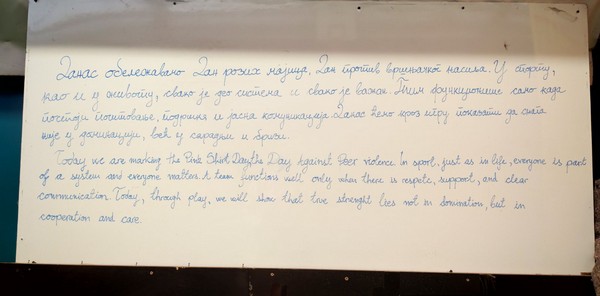 Данас обележавамо Дан розих мајица, Дан против вршњачког насиља. У спорту,
као и у животу, свако је део система и свако је важан. Тим функционише само када
постоји поштовање, подршка и јасна комуникација. Данас ћемо кроз игру показати да снага
није у доминацији, већ у сарадњи и бризи.
Today we are marking the Pink Shirt Day, the Day Against Peer violence. In sport, just as in life, everyone is part
of a system and everyone matters. A team functions well only when there is respetc, support, and clear
communication. Today, through play, we will show that true strenght lies not in domination, but in
cooperation and care.